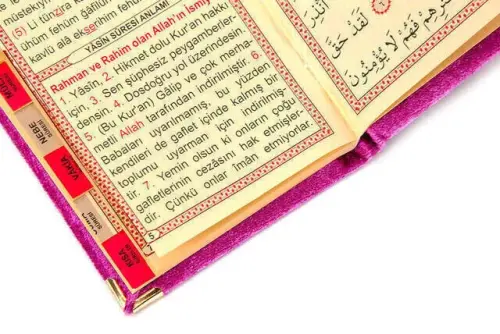 (5) Li tünzira
ühüm fehüm ğafilu
kavlü alâ ekserihim feh
YÂSİN SÛRESİ ANLAMI
Rahman ve Rahim olan Allah'ın İsmiy
1. Yâsîn. 2. Hikmet dolu Kur'an hakkı
için. 3. Sen şüphesiz peygamberler-
densin. 4. Dosdoğru yol üzerindesin.
5. (Bu Kur'an) Gâlip ve çok merha-
metli Allah tarafından indirilmiştir. 6.
Babaları uyarılmamış, bu yüzden
kendileri de gaflet içinde kalmış bir
toplumu uyarman için indirilmiş-
tir. 7. Yemin olsun ki onların çoğu
gafletlerinin cezasını hak etmişler-
dir. Çünkü onlar îman etmiyorlar.
لَقَدْ حَقَّ
فَهُمْ لَا يُؤْمِنُونَ
NEBE
SÛRESİ
VÂKIA
KISA